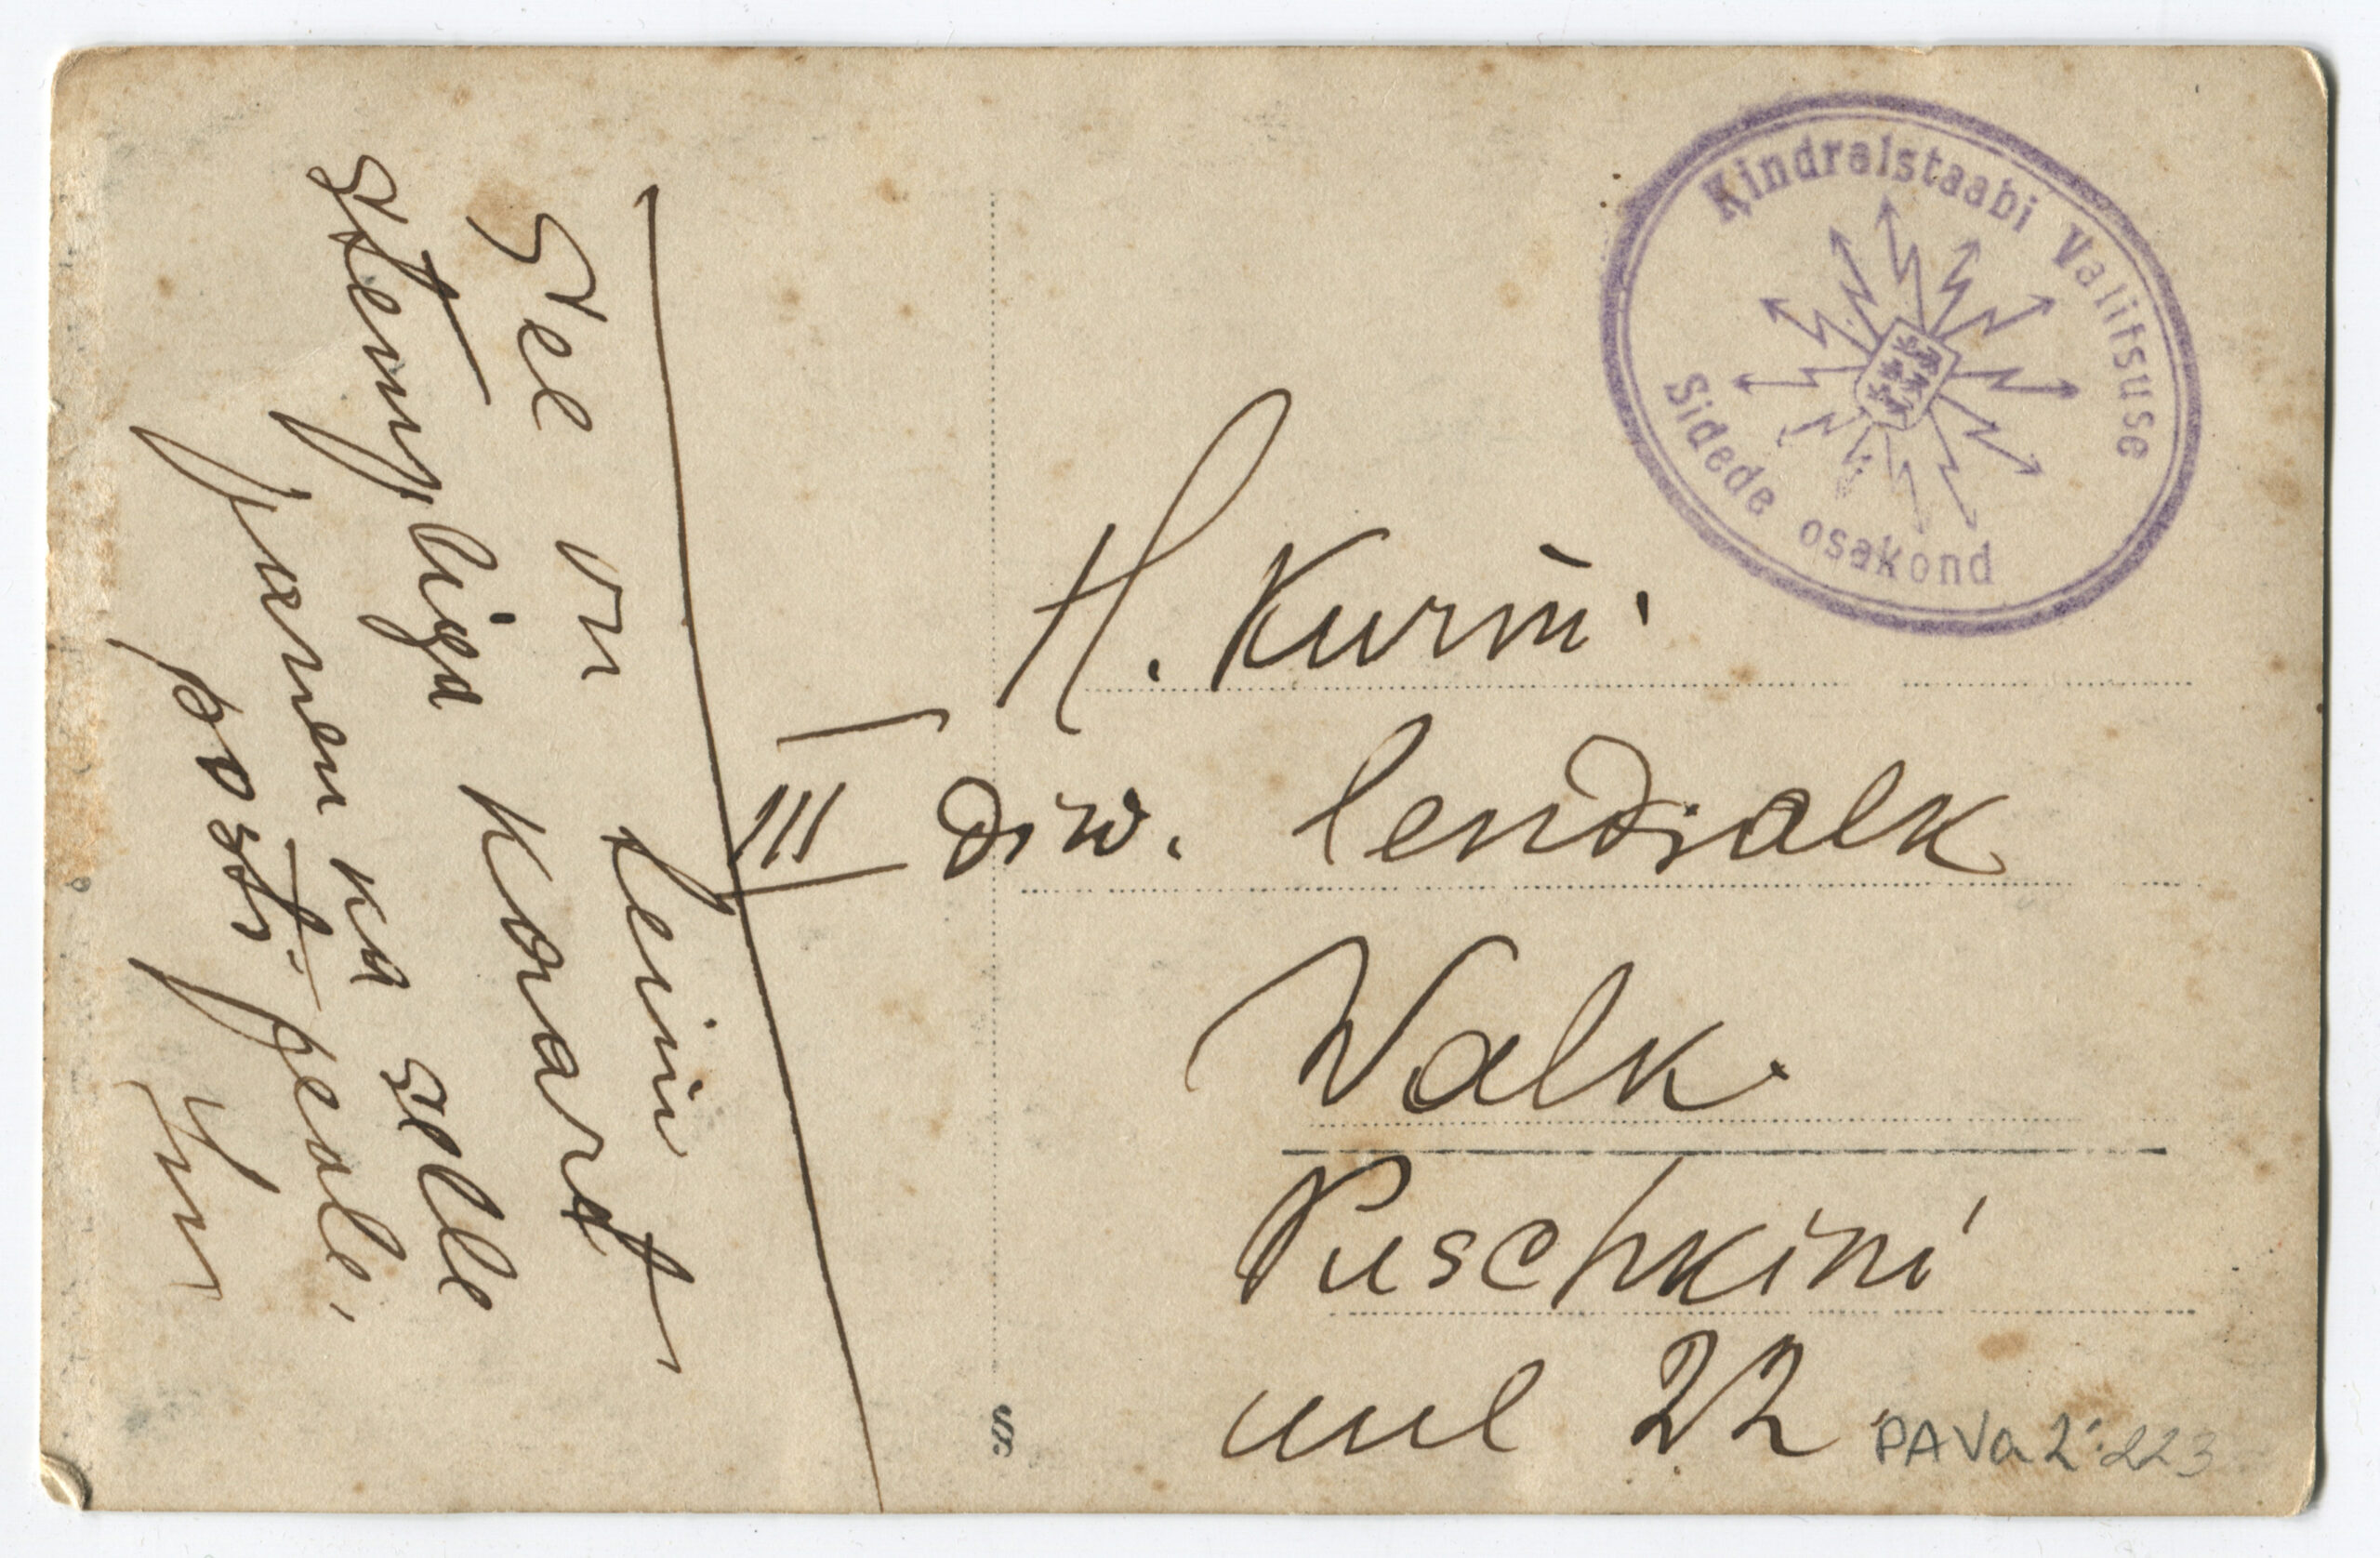 See on peini
stempliga kaart
panen ka selle
posti peale,
Kindralstaabi Valitsuse
Sidede osakond
H. Kurm.
III diw. lendsalk
Walk.
Puschkini
uul 22
PAVa 2:223